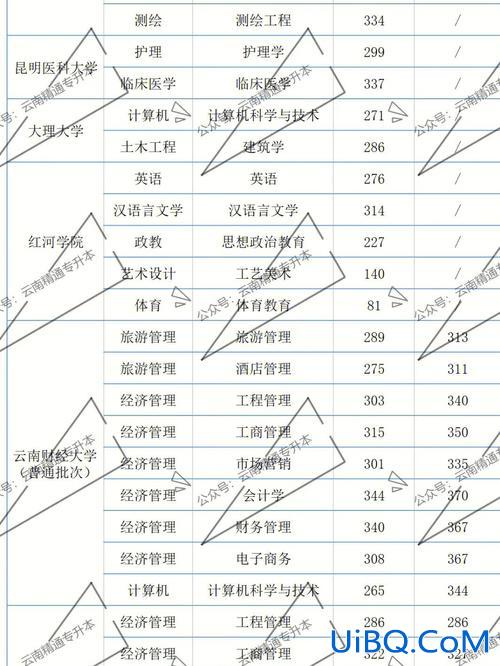 测绘 测绘工程 334 /
昆明医科大学
护理 护理学 299 /
临床医学 临床医学 337 /
大理大学
计算机 计算机科学与技术 271 /
土木工程 建筑学 286 /
红河学院
英语 英语 276 /
汉语言文学 汉语言文学 314 /
政教 思想政治教育 227 /
艺术设计 工艺美术 140 /
体育 体育教育 81 /
云南财经大学
(普通批次)
旅游管理 旅游管理 289 313
旅游管理 酒店管理 275 311
经济管理 工程管理 303 340
经济管理 工商管理 315 350
经济管理 市场营销 301 335
经济管理 会计学 344 370
经济管理 财务管理 340 367
经济管理 电子商务 308 367
计算机 计算机科学与技术 265 344
经济管理 工程管理 286 286
经济管理 工商管理
公众号：云南精通专升本
UiBQ.CoM